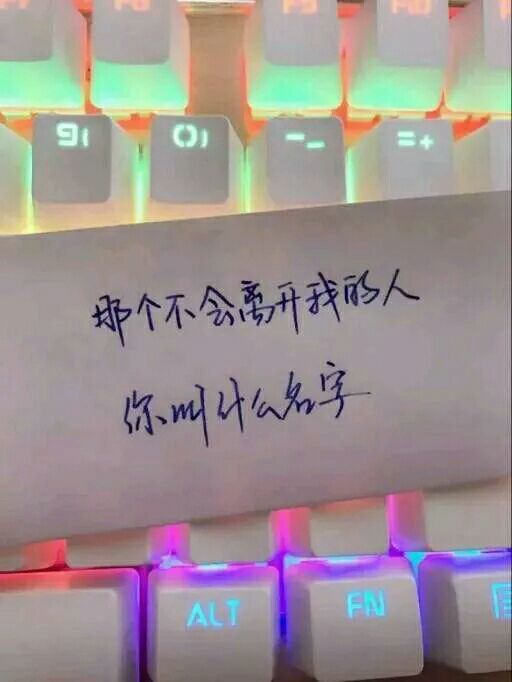 F8 F9 F10
9( 0) -_ =+
那个不会离开我的人
你叫什么名字
ALT FN